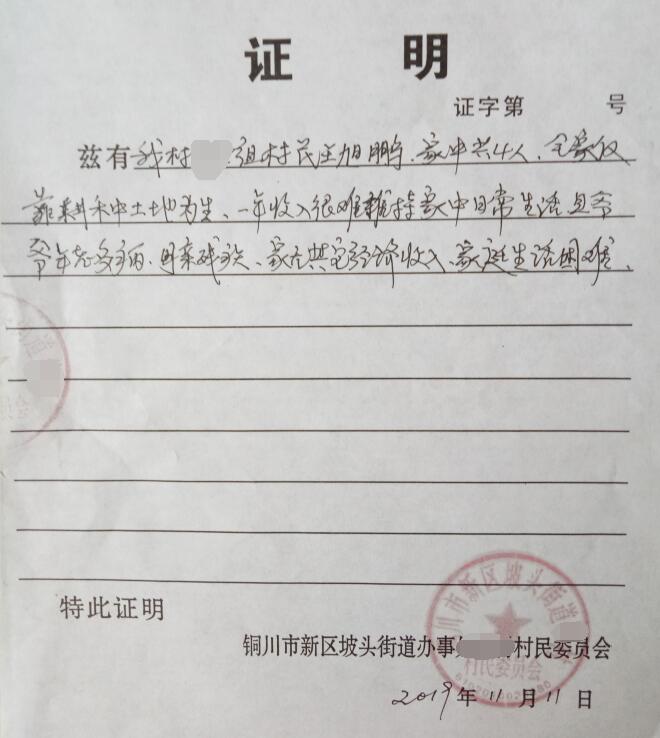 证 明
证字第 号
兹有我村 组村民王旭鹏、家中共4人、全家仅
靠耕种土地为生、一年收入很难维持家中日常生活且爷
爷年老多病、母亲残疾、家无其它经济收入、家庭生活困难、
特此证明
铜川市新区坡头街道办事 村民委员会
2019年11月11日
川市新区坡头街道
村民委员会